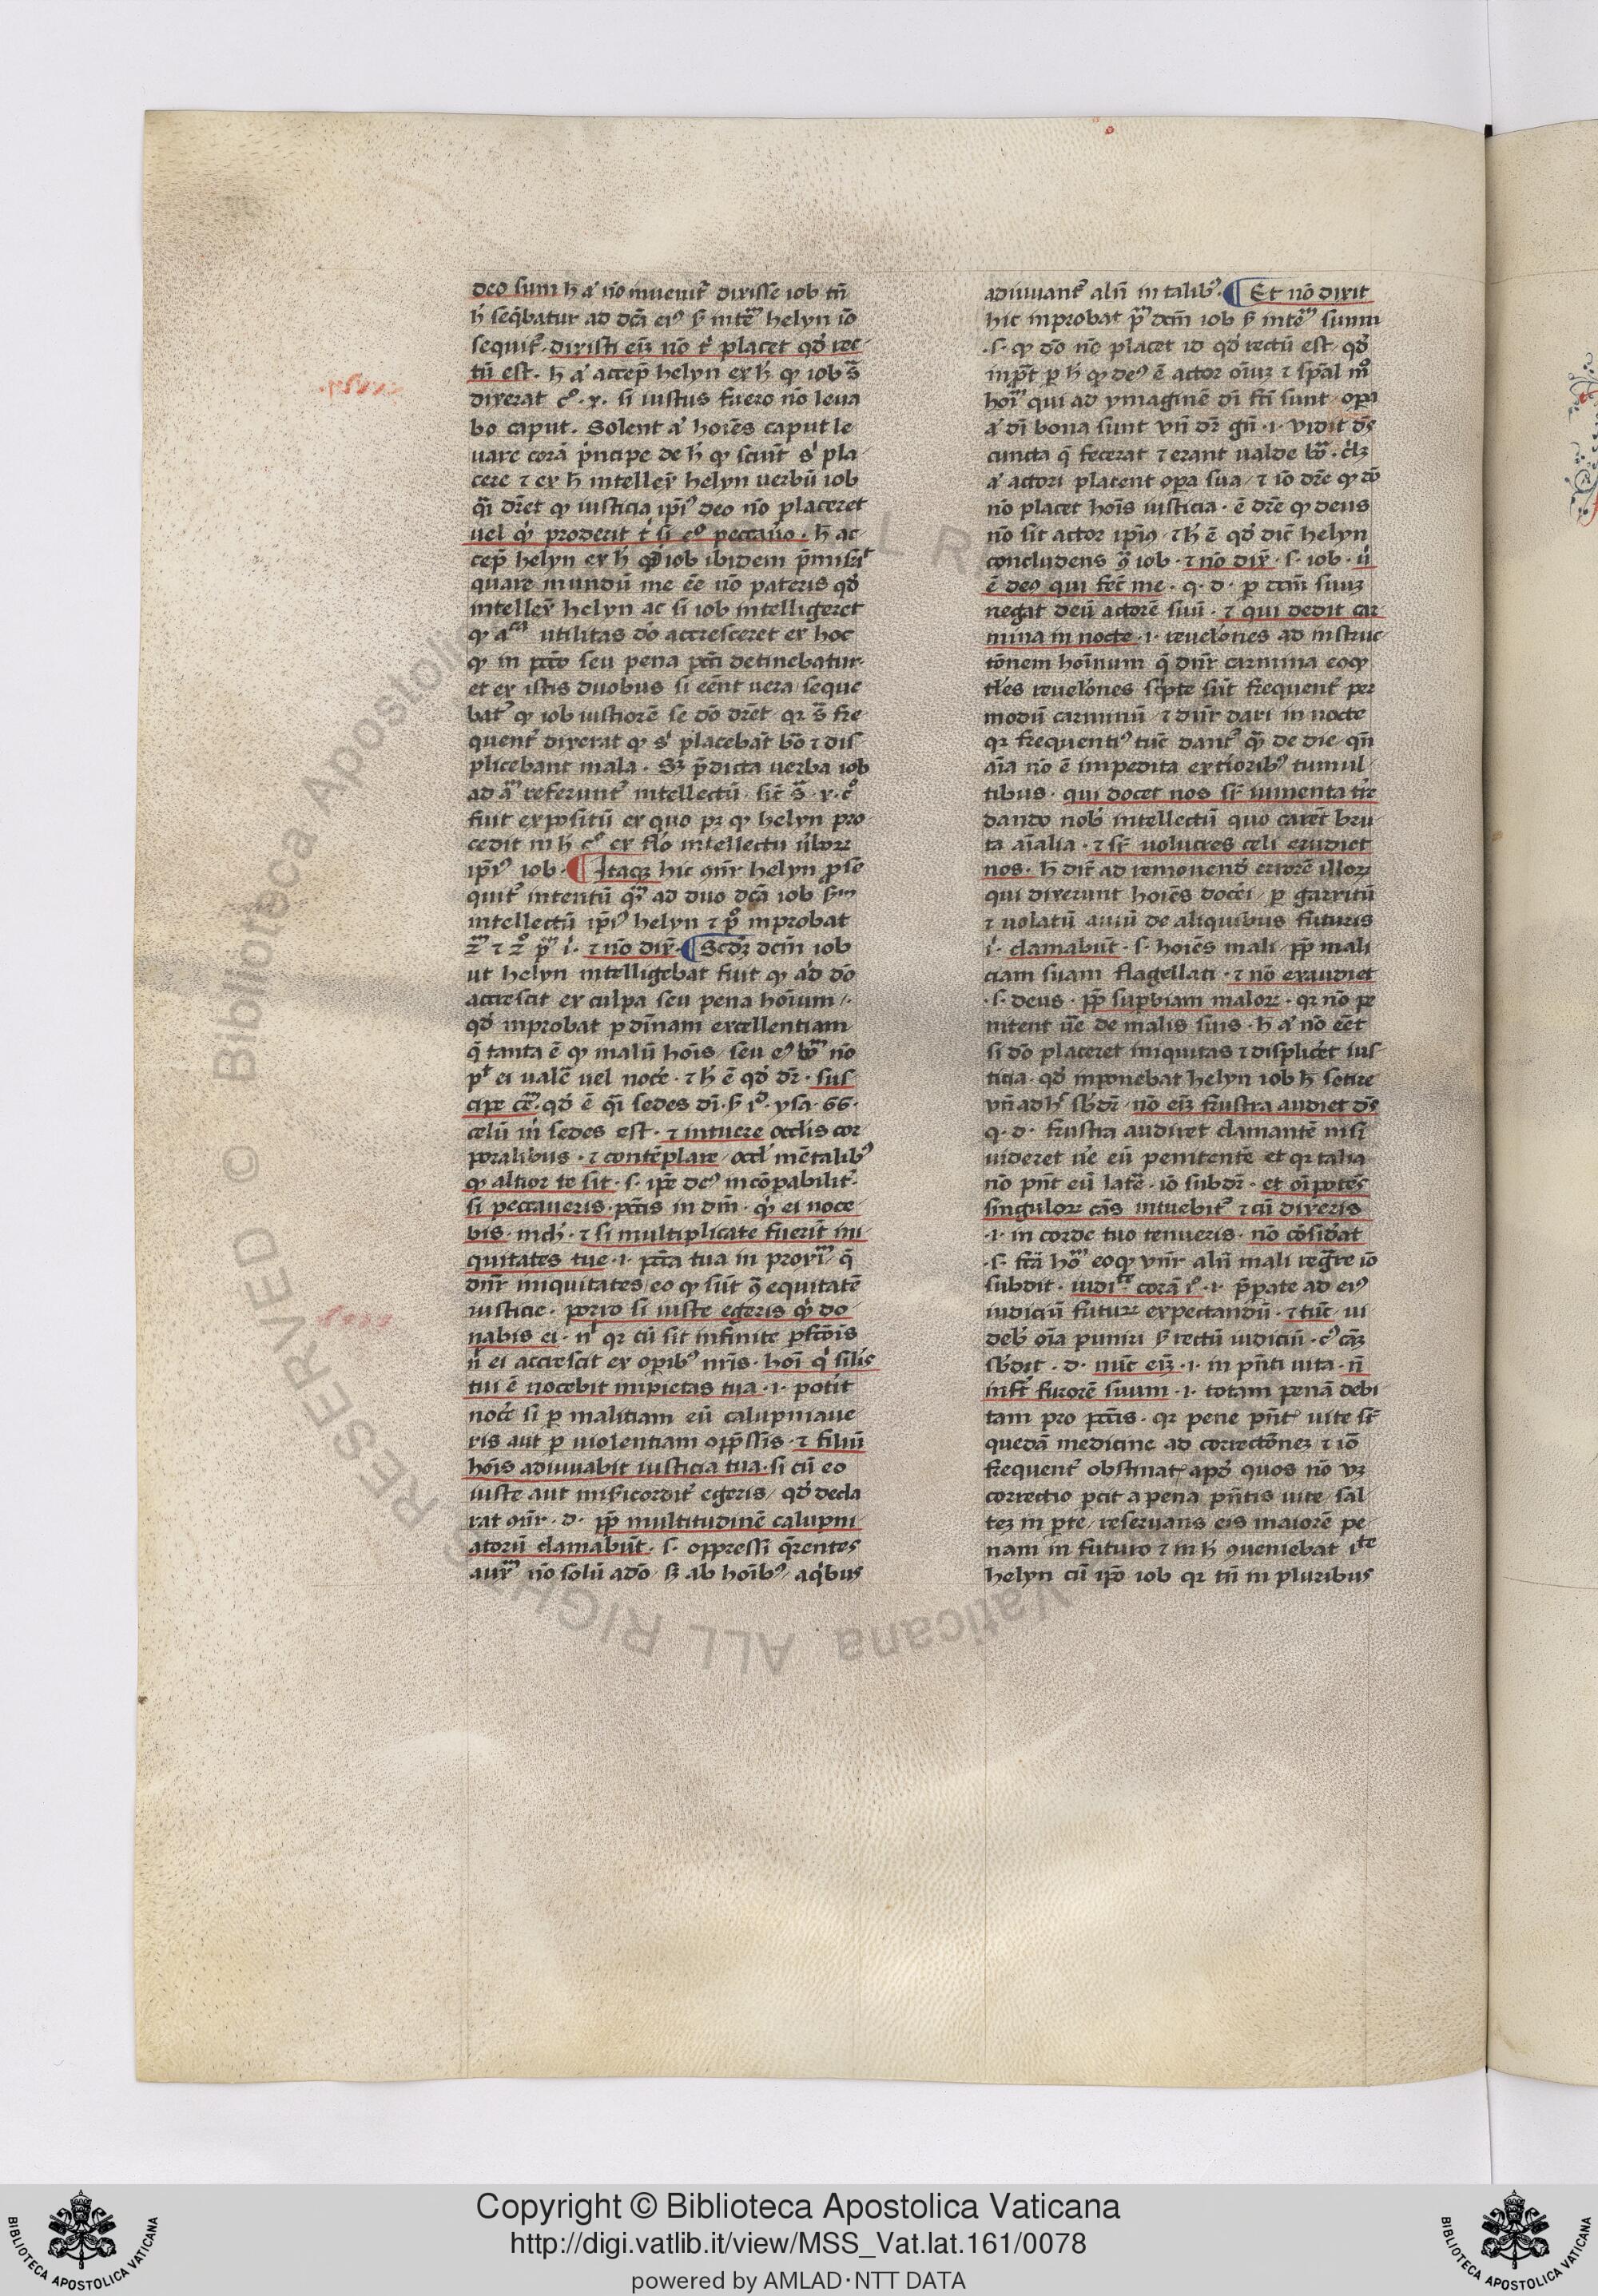 deo sum h̄ aͥ nō inuenit᷑ dixisse iob tn̄
h̄ seq̄batur ad dc̄a eiꝰ ẜ intēᵐ helyn iō
sequit᷑ dixisti eī nō tͥ placet qd̄ rec
tū est · h̄ aͥ accep̄ helyn ex h̄ ꝙ iob s̄
dixerat cͦ · x · si iustus fuero nō leua
bo caput . Solent aͥ hoīes caput le
uare corā p̄ncipe de h̄ ꝙ sciūt sͥ pla
cere ⁊ ex h̄ intellex̄ helyn uerbū iob
q̄i dr̄et ꝙ iusticia ip̄iꝰ deo nō placeret
uel qͥ proderit tͥ si eͦ peccauo · h̄ ac
cep̄ helyn ex h̄ ꝙ iob ibidem p̄misit
quare mundū me eē nō pateris qd̄
intellex̄ helyn ac si iob intelligeret
ꝙ utilitas dō accresceret ex hoc
ꝙ in pcc̄o seu pena pcc̄i detinebatur
et ex istis duobus si eēnt uera seque
bat᷑ ꝙ iob iustiorē se dō dr̄et qꝛ s̄ fre
quent᷑ dixerat ꝙ sͥ placebāt bō ⁊ dis
plicebant mala . Sꝫ p̄dicta uerba iob
ad referunt᷑ intellectū sic̄ s̄ x · cͦ
fuit expositū ex quo pꝫ ꝙ helyn pro
cedit in h̄ cͦ ex flō intellectu ūboꝝ
ip̄iꝰ iob · ¶ Itaqꝫ hic helyn p̄se
quit᷑ intentū ad duo dc̄a iob
intellectū ip̄iꝰ helyn ⁊ pͦ inprobat
⁊ nō dix̄ · ¶ Scd̄ꝫ dcm̄ iob
ut helyn intelligebat fuit ꝙ dō
accrescit ex culpa seu pena hoīum
qd̄ inprobat ꝑ diuinam excellentiam
q̄ tanta ē ꝙ malū hoīs seu eꝰ bōᵐ nō
pͭ ei ualē uel nocē · ⁊ h̄ ē qd̄ dr̄ · sus
cipe ce᷑ᵐ · qd̄ ē q̄i sedes di · ẜ iͦ · ysa · 66 ·
celū mͥ sedes est · ⁊ intuere occlis cor
poralibus · ⁊ contēplare occl̄ mētalibꝰ
ꝙ altior te sit · s · ip̄e deꝰ incōpabilit᷑
si peccaueris · pcc̄is in dm̄ · qͥ ei noce
bis · · ⁊ si multiplicate fuerīt ini
quitates tue · i · pcc̄a tua in proxiᵐ q̄
dn̄r iniquitates eo ꝙ sūt ꝯ̄ equitatē
iusticie · porro si iuste egeris qͥ do
nabis ei · nͥ qꝛ cū sit infinite pfcōis
nͥ ei accrescit ex opibꝰ nr̄is · hoī qͥ sil̄is
tui ē nocebit impietas tua · i · potit
nocē si ꝑ malitiam eū calupniaue
ris aut ꝑ uiolentiam opp̄ssis · ⁊ filiū
hoīs adiuuabit iusticia tua · si cū eo
iuste aut mīsicordit᷑ egeris qd̄ decla
rat · d · pp̄ multitudinē calupni
atorū clamabūt · s · oppressi q̄rentes
auxᵐ nō solū adō sꝫ ab hoībꝰ aqͥbus
adiuuant᷑ alii in talibꝰ · ¶ Et nō dixit
hic inprobat p̄ᵐ dcm̄ iob ẜ intēᵐ suum
· s · ꝙ dō nō placet id qd̄ rectū est qd̄
inp̄t ꝑ h̄ ꝙ deꝰ ē actor oīuꝫ ⁊ sp̄al
hoīᵐ qui ad ymaginē di fc̄i sunt opa
aͥ di bona sunt vn̄ dr̄ gn̄ · i · vidit ds̄
cuncta q̄ fecerat ⁊ erant ualde bōᵃ · cͥlꝫ
aͥ actori placent opa sua ⁊ iō dr̄e ꝙ dō
nō placet hoīs iusticia · ē dr̄e ꝙ deus
nō sit actor ipiꝰ ⁊ h̄ ē qd̄ dic̄ helyn
concludens ꝯ̄ iob · ⁊ nō dix̄ · s · iob · uͥ
ē deꝰ qui fec̄ me · q · d · ꝑ dcm̄ suuꝫ
negat deū actorē suū · ⁊ qui dedit car
mina in nocte · i · reuelōnes ad instruc
tōnem hoīnum q̄ dn̄r carmina eo ꝙ
tl̄es reuelōnes sc̄pte sūt frequent᷑ per
modū carminū ⁊ dn̄r dari in nocte
qꝛ frequentiꝰ tūc dant᷑ q̄ᵐ de die qn̄
aīa nō ē impedita extioribꝰ tumul
tibus · qui docet nos sꝑ iumenta tr̄e
dando nob̄ intellectū quo carēt bru
ta aīalia · ⁊ sꝑ uolucres celi erudiet
nos · h̄ dic̄ ad remouend̄ errorē illoꝝ
qui dixerunt hoīes docēi ꝑ garritū
⁊ uolatū auiū de aliquibus futuris
iͥ · clamabūt · s · hoīes mali pp̄ mali
ciam suam flagellati · ⁊ nō exaudiet
· s · deus · pp̄ supbiam maloꝝ · qꝛ nō pe
nitent ue᷑ de malis suis · h̄ aͥ nō eēt
si dō placeret iniquitas ⁊ displicēt ius
ticia · qd̄ inponebat helyn iob h̄ setire
vn̄ ad h̄ sb̄dr̄ nō eīꝫ frustra audiet ds̄
q · d · frustra audiret clamantē nisi
uideret ue᷑ eū penitentē et qꝛ talia
nō pn̄t eū latē · iō subdr̄ · et oīpotēs
singuloꝝ cās intuebit᷑ ⁊ cū dixeris
· i · in corde tuo tenueris · nō cōsidāt
· s · fc̄a hōᵐ eo ꝙ vn̄r alii mali regr̄e iō
subdit · iudiᵗᵉ corā iͦ · i · p̄pate ad eiꝰ
iudiciū futuꝝ expectandū · ⁊ tūc ui
deb̄ oīa puniri ẜ rectū iudiciū · cꝰ cāꝫ
sb̄dit · d · nūc eīꝫ · i · in pn̄ti uita · n̄
inft᷑ furorē suum · i · totam penā debi
tam pro pcc̄is · qꝛ pene pn̄t᷑ uite sꝑ
quedā medicine ad correctōneꝫ ⁊ iō
frequent᷑ obstinat᷑ apd̄ quos nō uꝫ
correctio pcit a pena pn̄tis uite sal
teꝫ in pte reseruans eis maiorē pe
nam in futuro ⁊ in h̄ ꝯueniebat
helyn cū ip̄o iob qꝛ tn̄ in pluribus
© Biblioteca Apostolica Vaticana ALL RIGHTS RESERVED
Copyright © Biblioteca Apostolica Vaticana
http://digi.vatlib.it/view/MSS_Vat.lat.161/0078
powered by AMLAD·NTT DATA
BIBLIOTECA APOSTOLICA VATICANA
BIBLIOTECA APOSTOLICA VATICANA